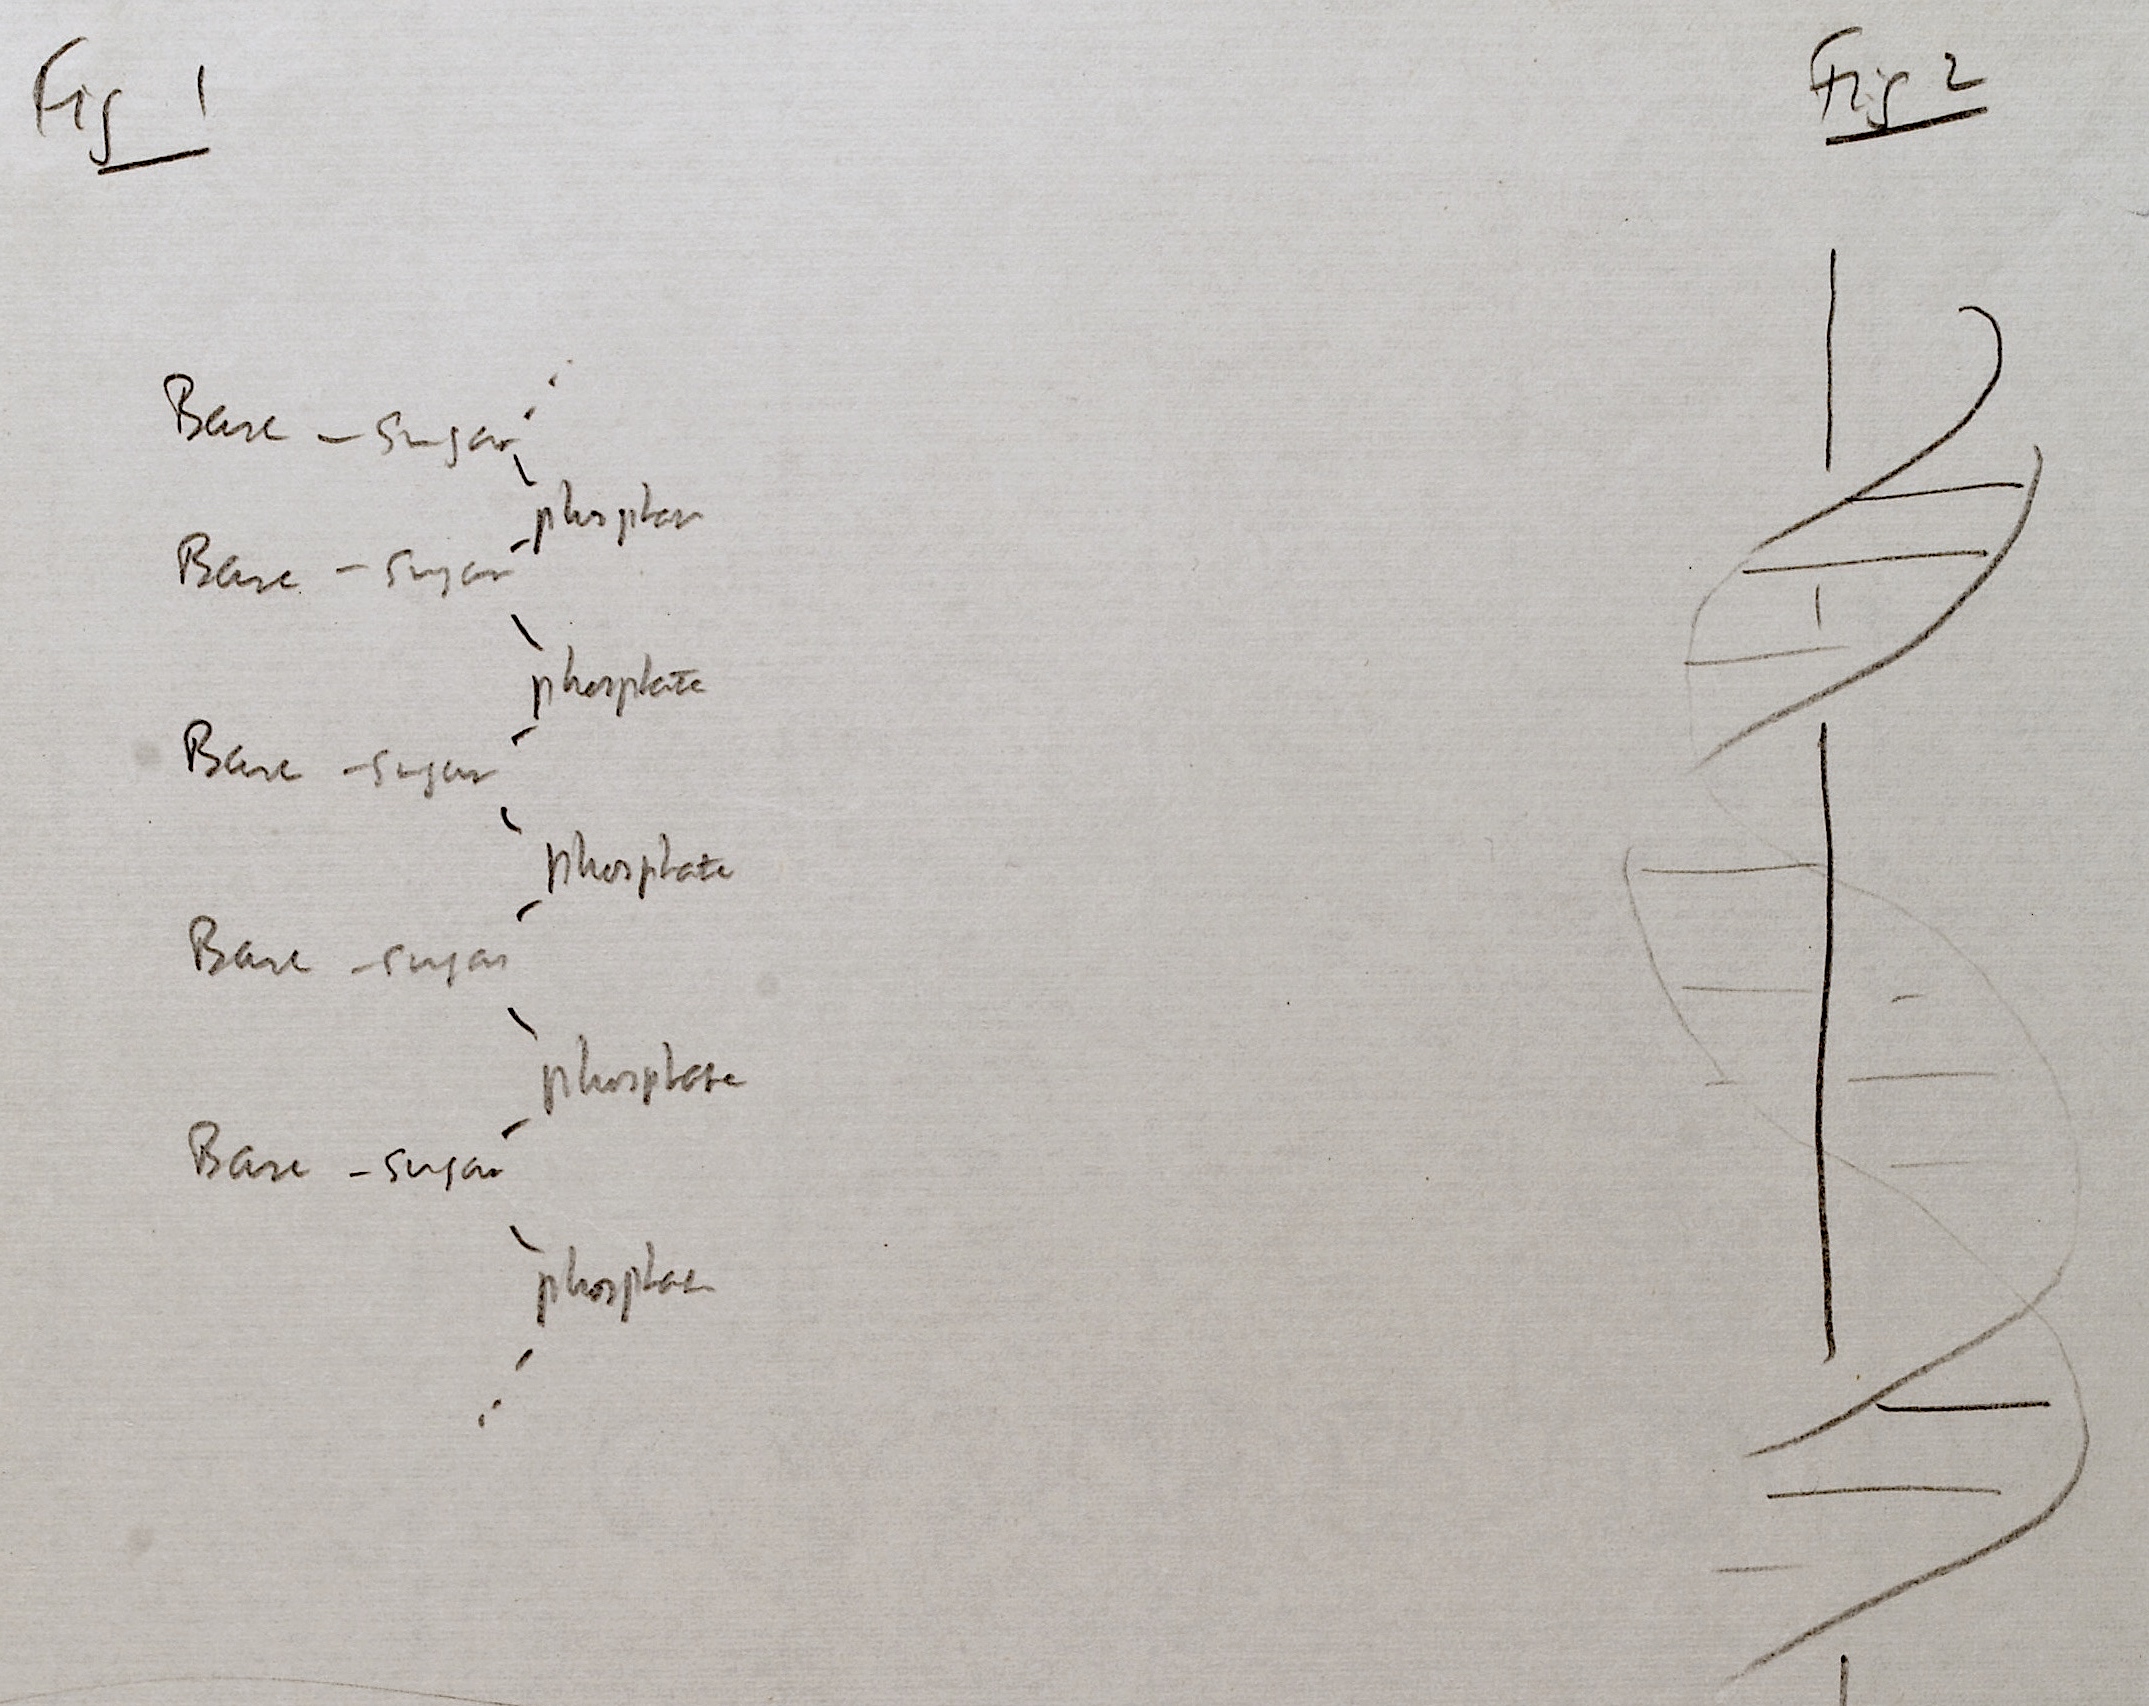 Fig 1
Fig 2
Base - sugar
phosphate
Base - sugar
phosphate
Base - sugar
phosphate
Base - sugar
phosphate
Base - sugar
phosphate